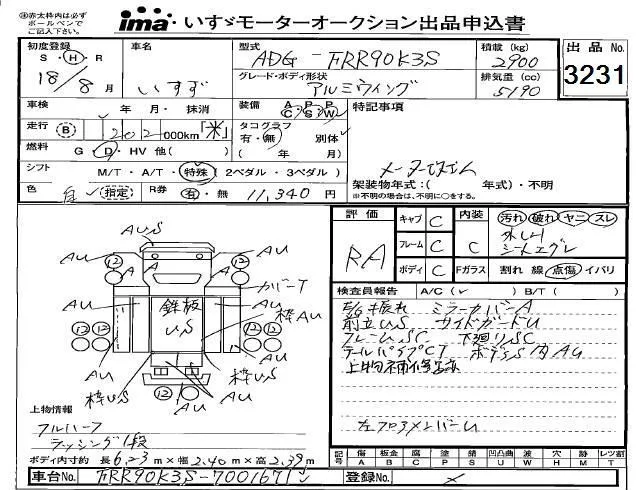 ㊟赤太枠内は必ずボールペンでご記入下さい。
ima・いすゞモーターオークション出品申込書
初度登録 S・H・R 18/8月
車名 いすず
型式 ADG-FRR90K3S
積載(kg) 2900
出品No. 3231
グレード・ボディ形状 アルミウィング
排気量(cc) 5190
車検 年 月・抹消
装備 AC PS PW
特記事項
走行 B 202 000km「米」
タコグラフ 有・無 別体
燃料 G・D・HV 他( )
( 年 月)
シフト M/T・A/T・特殊(2ペダル・3ペダル)
架装物年式:( 年式)・不明
※不明の場合は、不明に○をする。
色 白 (指定) R券 有・無 11,340円
評価 RA
キャブ C
フレーム C
ボディ C
内装 C
Fガラス
汚れ 破れ ヤニ スレ
割れ 線 点傷 イパリ
検査員報告 A/C( ✓ ) B/T( )
ミラーカバーA
前立US サイドガードU
フレームSC 下廻りSC
テールパイプCT ボデーS内AU
上物補修跡
AUS
AU 12 12 AU
A A
AU カバーT
鉄板US 枠AU
AU
12 12 12 12
AU AU
枠US 枠US
12
AU AU
上物情報
フルハーフ
ラッシング1段
ボディ内寸約 長6.23m×幅2.40m×高2.39m
記号 傷A 板金B 腐C 塗P 錆S 凹凸曲U 波W 穴H 跡M 汚T レツ割
車台No. FRR90K3S-7001671
登録No.